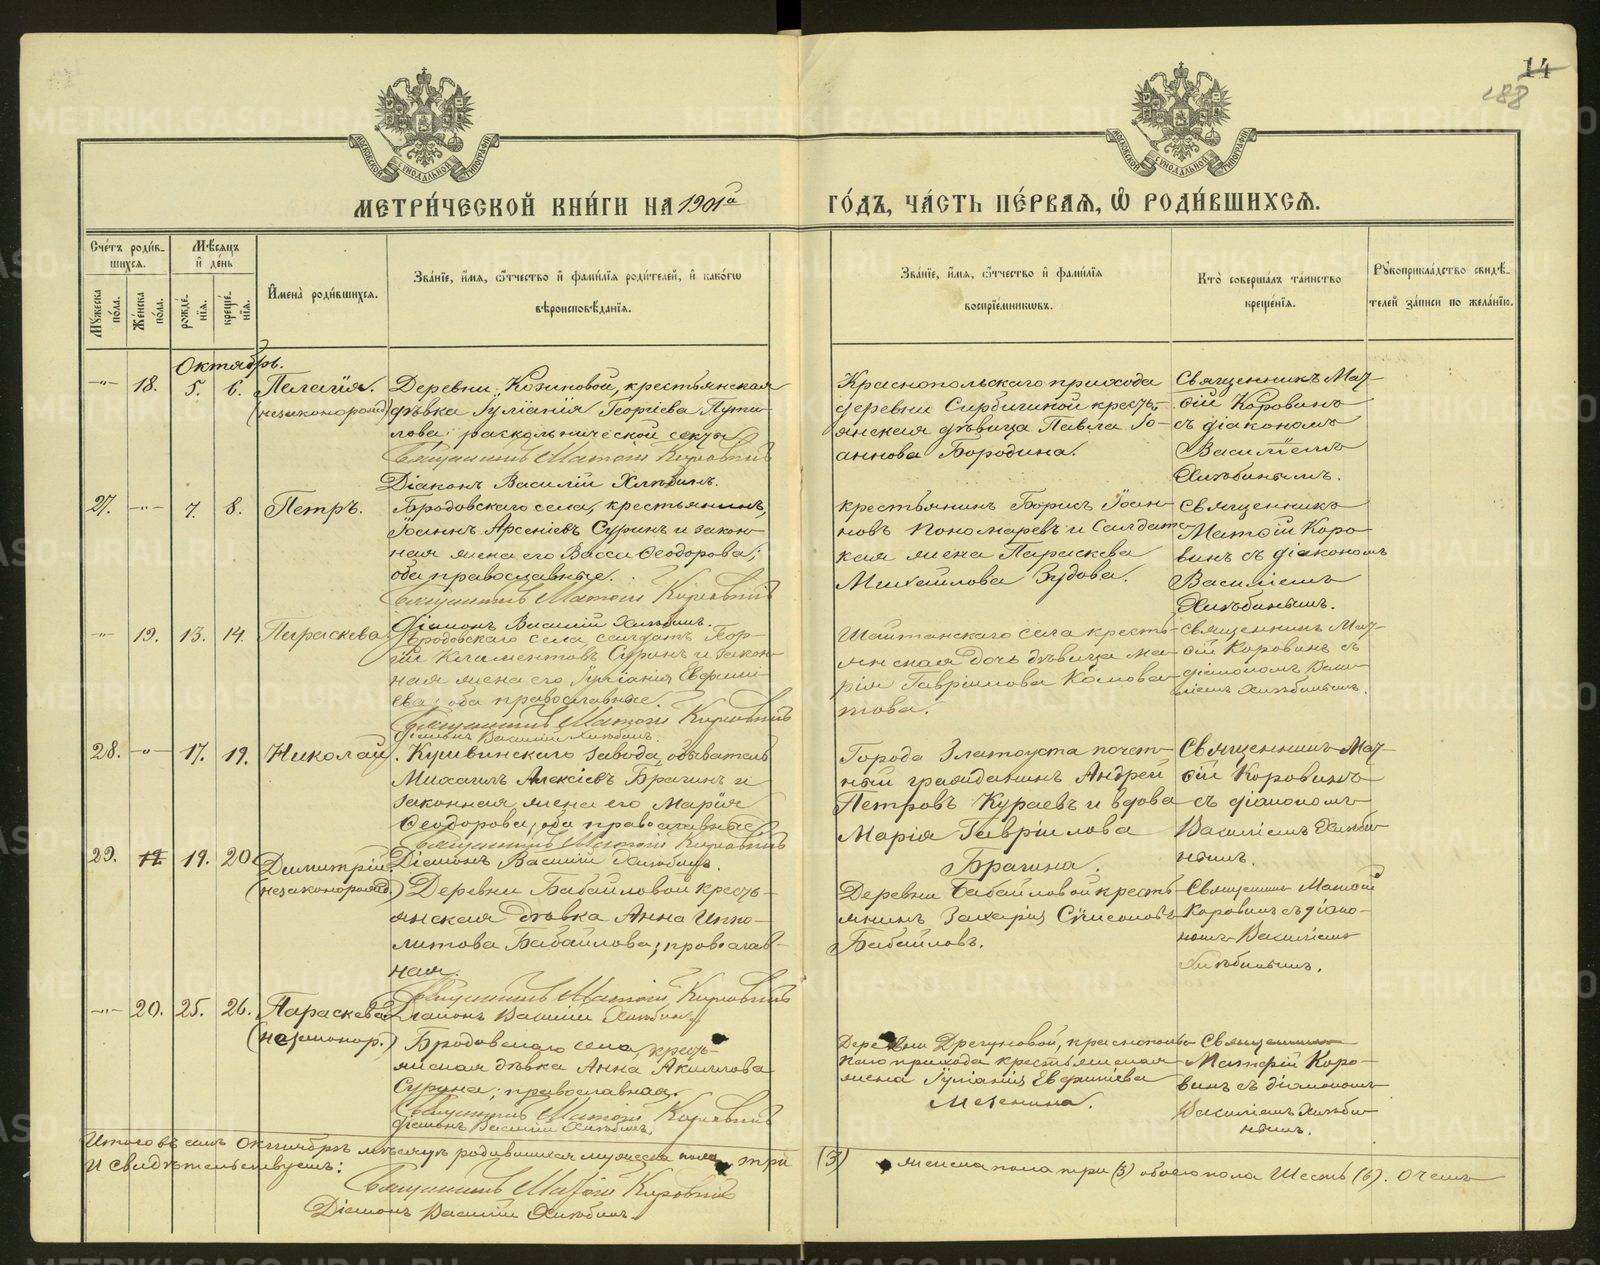 14
188
МЕТРИ́ЧЕСКОЙ КНИ́ГИ НА 1901й
ГО́ДЪ, ЧА́СТЬ ПЕ́РВАЯ, Ѡ҆ РОДИ́ВШИХСЯ.
Сче́тъ роди́в-
шихся.
Мѣ́сяцъ
и҆ де́нь
И҆мена̀ роди́вшихся.
Зва́нїе, и҆́мя, ѻ҆́тчество и҆ фами́лїя роди́телей, и҆ како́гѡ
вѣроисповѣ́данїя.
Зва́нїе, и҆́мя, ѻ҆́тчество и҆ фами́лїя
воспрїе́мникѡвъ.
Кто̀ соверша́лъ та́инство
креще́нїя.
Рꙋкоприкла́дство свидѣ́-
телей за́писи по жела́нїю.
Мꙋ́жеска
по́ла.
Же́нска
по́ла.
рожде́-
нїя.
креще́-
нїя.
Октябрь.
-"- 18. 5. 6. Пелагія.
(незаконорожд)
Деревни Козиновой, крестьянская
дѣвка Іуліанія Георгіева Пути-
лова: раскольнической секты
Священникъ Матѳій Коровинъ
Діаконъ Василій Хлѣбинъ.
Краснопольскаго прихода
деревни Сербишиной кресть-
янская дѣвица Павла Іо-
аннова Бородина.
Священникъ Мат-
ѳій Коровинъ
съ діакономъ
Василіемъ
Хлѣбинымъ.
27. -"- 7. 8. Петръ.
Бродовскаго села, крестьянинъ,
Іоаннъ Арсеніевъ Суринъ и закон-
ная жена его Васса Ѳеодорова;
оба православные.
Священникъ Матѳій Коровинъ
Діаконъ Василій Хлѣбинъ.
крестьянинъ Борисъ Іоан-
новъ Пономаревъ и Солдат-
кая жена Параскева
Михаилова Зудова.
Священникъ
Матѳій Коро-
винъ съ діакономъ
Василіемъ
Хлѣбинымъ.
-"- 19. 13. 14. Параскева.
Бродовскаго села, солдатъ Геор-
гій Климентовъ Суринъ и закон-
ная жена его Іуліанія Евфимі-
ева; оба православные.
Священникъ Матѳій Коровинъ
Діаконъ Василій Хлѣбинъ.
Шайтанскаго села кресть-
янская дочь дѣвица Ма-
рія Гавріилова Комова-
това.
Священникъ Мат-
ѳій Коровинъ съ
діакономъ Васи-
ліемъ Хлѣбинымъ.
28. -"- 17. 19. Николай.
Кушвинскаго завода, обыватель
Михаилъ Алексіевъ Брагинъ и
законная жена его Марія
Ѳеодорова; оба православные.
Священникъ Матѳій Коровинъ
Діаконъ Василій Хлѣбинъ.
Города Златоуста почет-
ный гражданинъ Андрей
Петровъ Кураевъ и вдова
Марія Гавріилова
Брагина.
Священникъ Мат-
ѳій Коровинъ
съ діакономъ
Василіемъ Хлѣби-
нымъ.
29. 19. 20. Димитрій.
(незаконорожд.)
Деревни Бабаиловой кресть-
янская дѣвка Анна Иппо-
литова Бабаилова; православ-
ная.
Священникъ Матѳій Коровинъ
Діаконъ Василій Хлѣбинъ
Деревни Бабаиловой кресть-
янинъ Захарія Симеоновъ
Бабаиловъ.
Священникъ Матѳій
Коровинъ съ діако-
номъ Василіемъ
Хлѣбинымъ.
-"- 20. 25. 26. Параскева
(незаконор.)
Бродовскаго села, кресть-
янская дѣвка Анна Акиллова
Сурина; православная.
Священникъ Матѳій Коровинъ
Діаконъ Василій Хлѣбинъ.
Деревни Брагуновой, краснополь-
скаго прихода крестьянская
жена Іуліанія Евфиміева
Мезенина.
Священникъ
Матѳій Коро-
винъ съ діакономъ
Василіемъ Хлѣби-
нымъ.
Итого въ семъ Октябрѣ мѣсяцѣ родившихся мужеска пола три (3) женска пола три (3) обоего пола Шесть (6). О чемъ
И свидѣтельствуемъ:
Священникъ Матѳій Коровинъ
Діаконъ Василій Хлѣбинъ.
METRIKI.GASO-URAL.RU